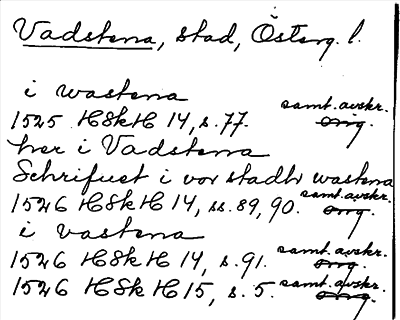 Vadstena, stad, Österg. l.
i wastena
1525 HSkH 14, s. 77. samt. avskr. orig.
her i Vadstena
Schrifuet i vor stadh wastena
1526 HSkH 14, ss. 89, 90. samt. avskr. orig.
i vastena
1526 HSkH 14, s. 91. samt. avskr. orig.
1526 HSk H 15, s. 5. samt. avskr. orig.